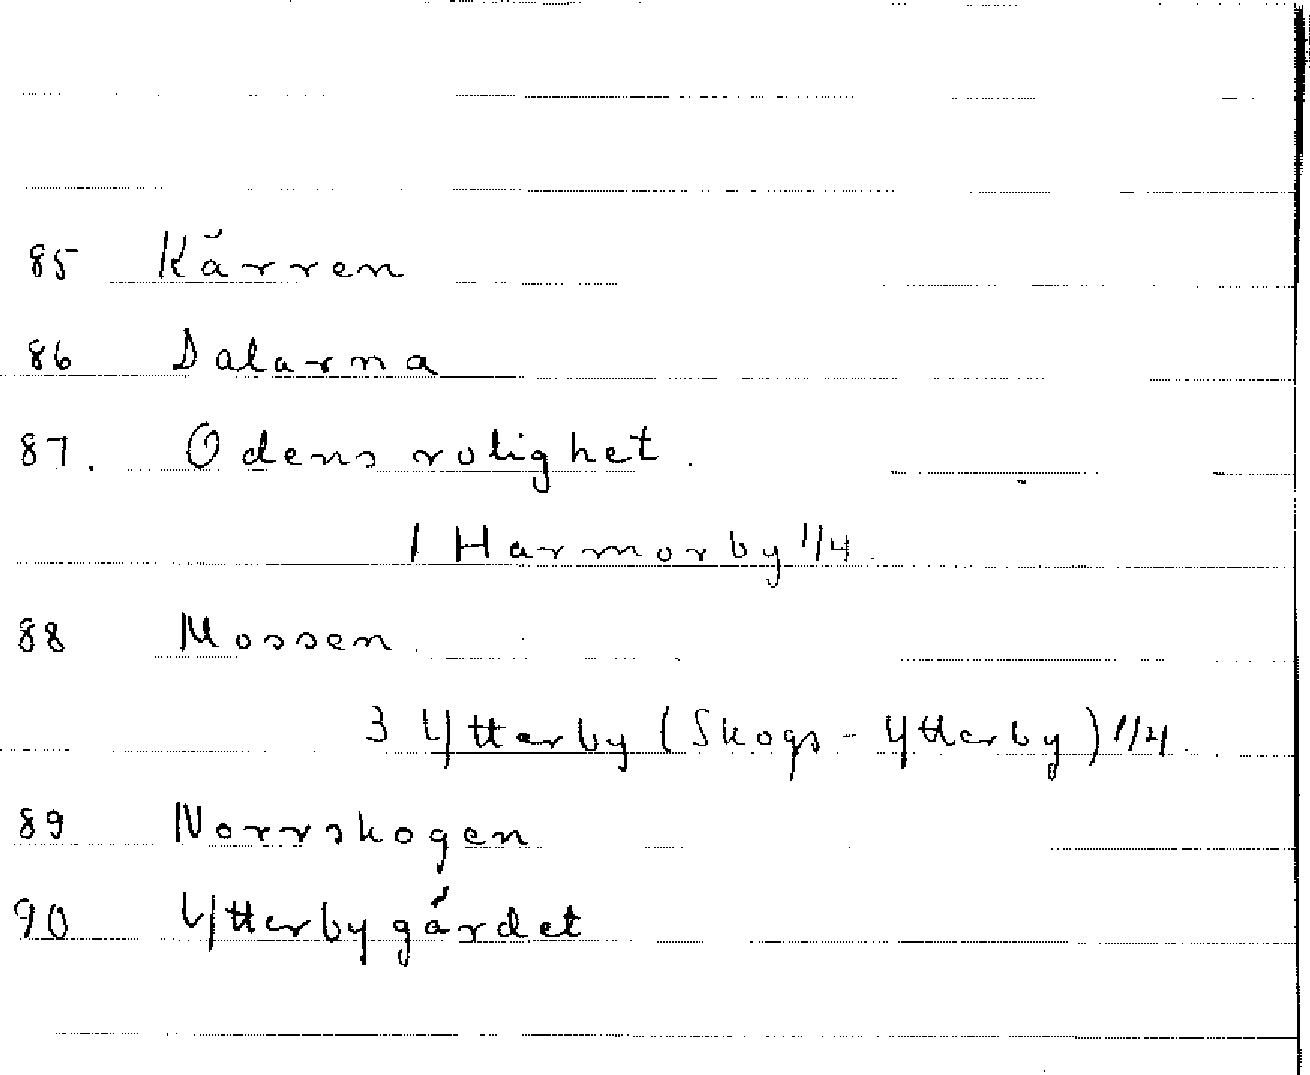 85 Kärren
86 Dalarna
87. Odens rolighet.
1 Harmorby 1/4
88 Mossen
3 Ytterby (Skogs-Ytterby) 1/4
89 Norrskogen
90 Ytterbygärdet